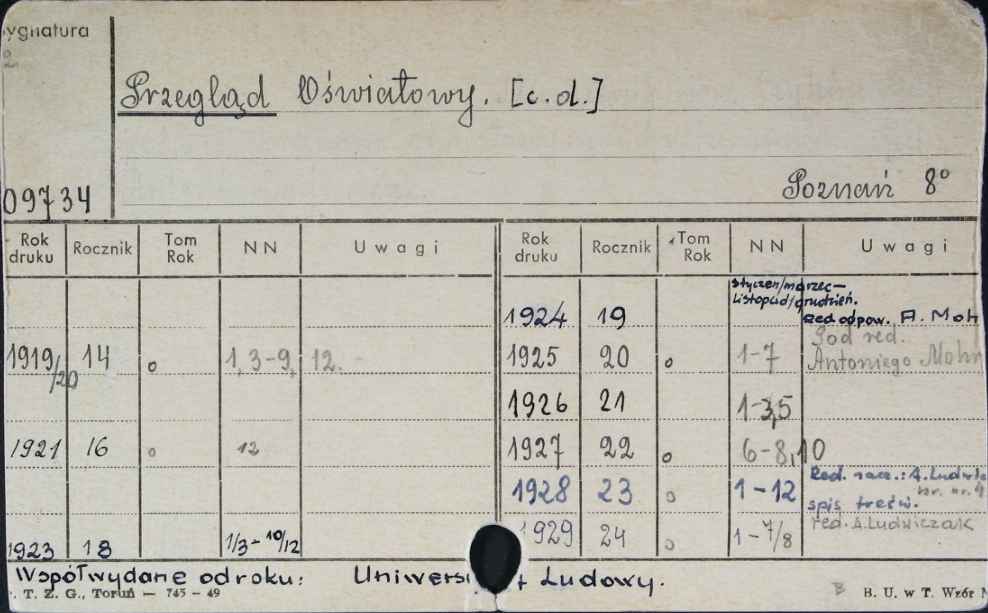 ygnatura
Przegląd Oświatowy. [c.d.]
Poznań 8°
09734
Rok druku Rocznik Tom Rok NN Uwagi Rok druku Rocznik Tom Rok NN Uwagi
styczeń/marzec—
listopad/grudzień.
1924 19 red. odpow. A. Moh
Pod red.
1919/20 14 o 1, 3-9, 12. 1925 20 o 1-7 Antoniego Mohr
1926 21 1-3,5
1921 16 o 12 1927 22 o 6-8,10
Red. nacz.: A. Ludwic
1928 23 o 1-12 spis treśw.
red. A. Ludwiczak
1923 18 1/3-10/12 1929 24 o 1-7/8
Współwydane od roku: Uniwersy Ludowy.
. T. Z. G., Toruń — 745 — 49 B. U. w T. Wzór